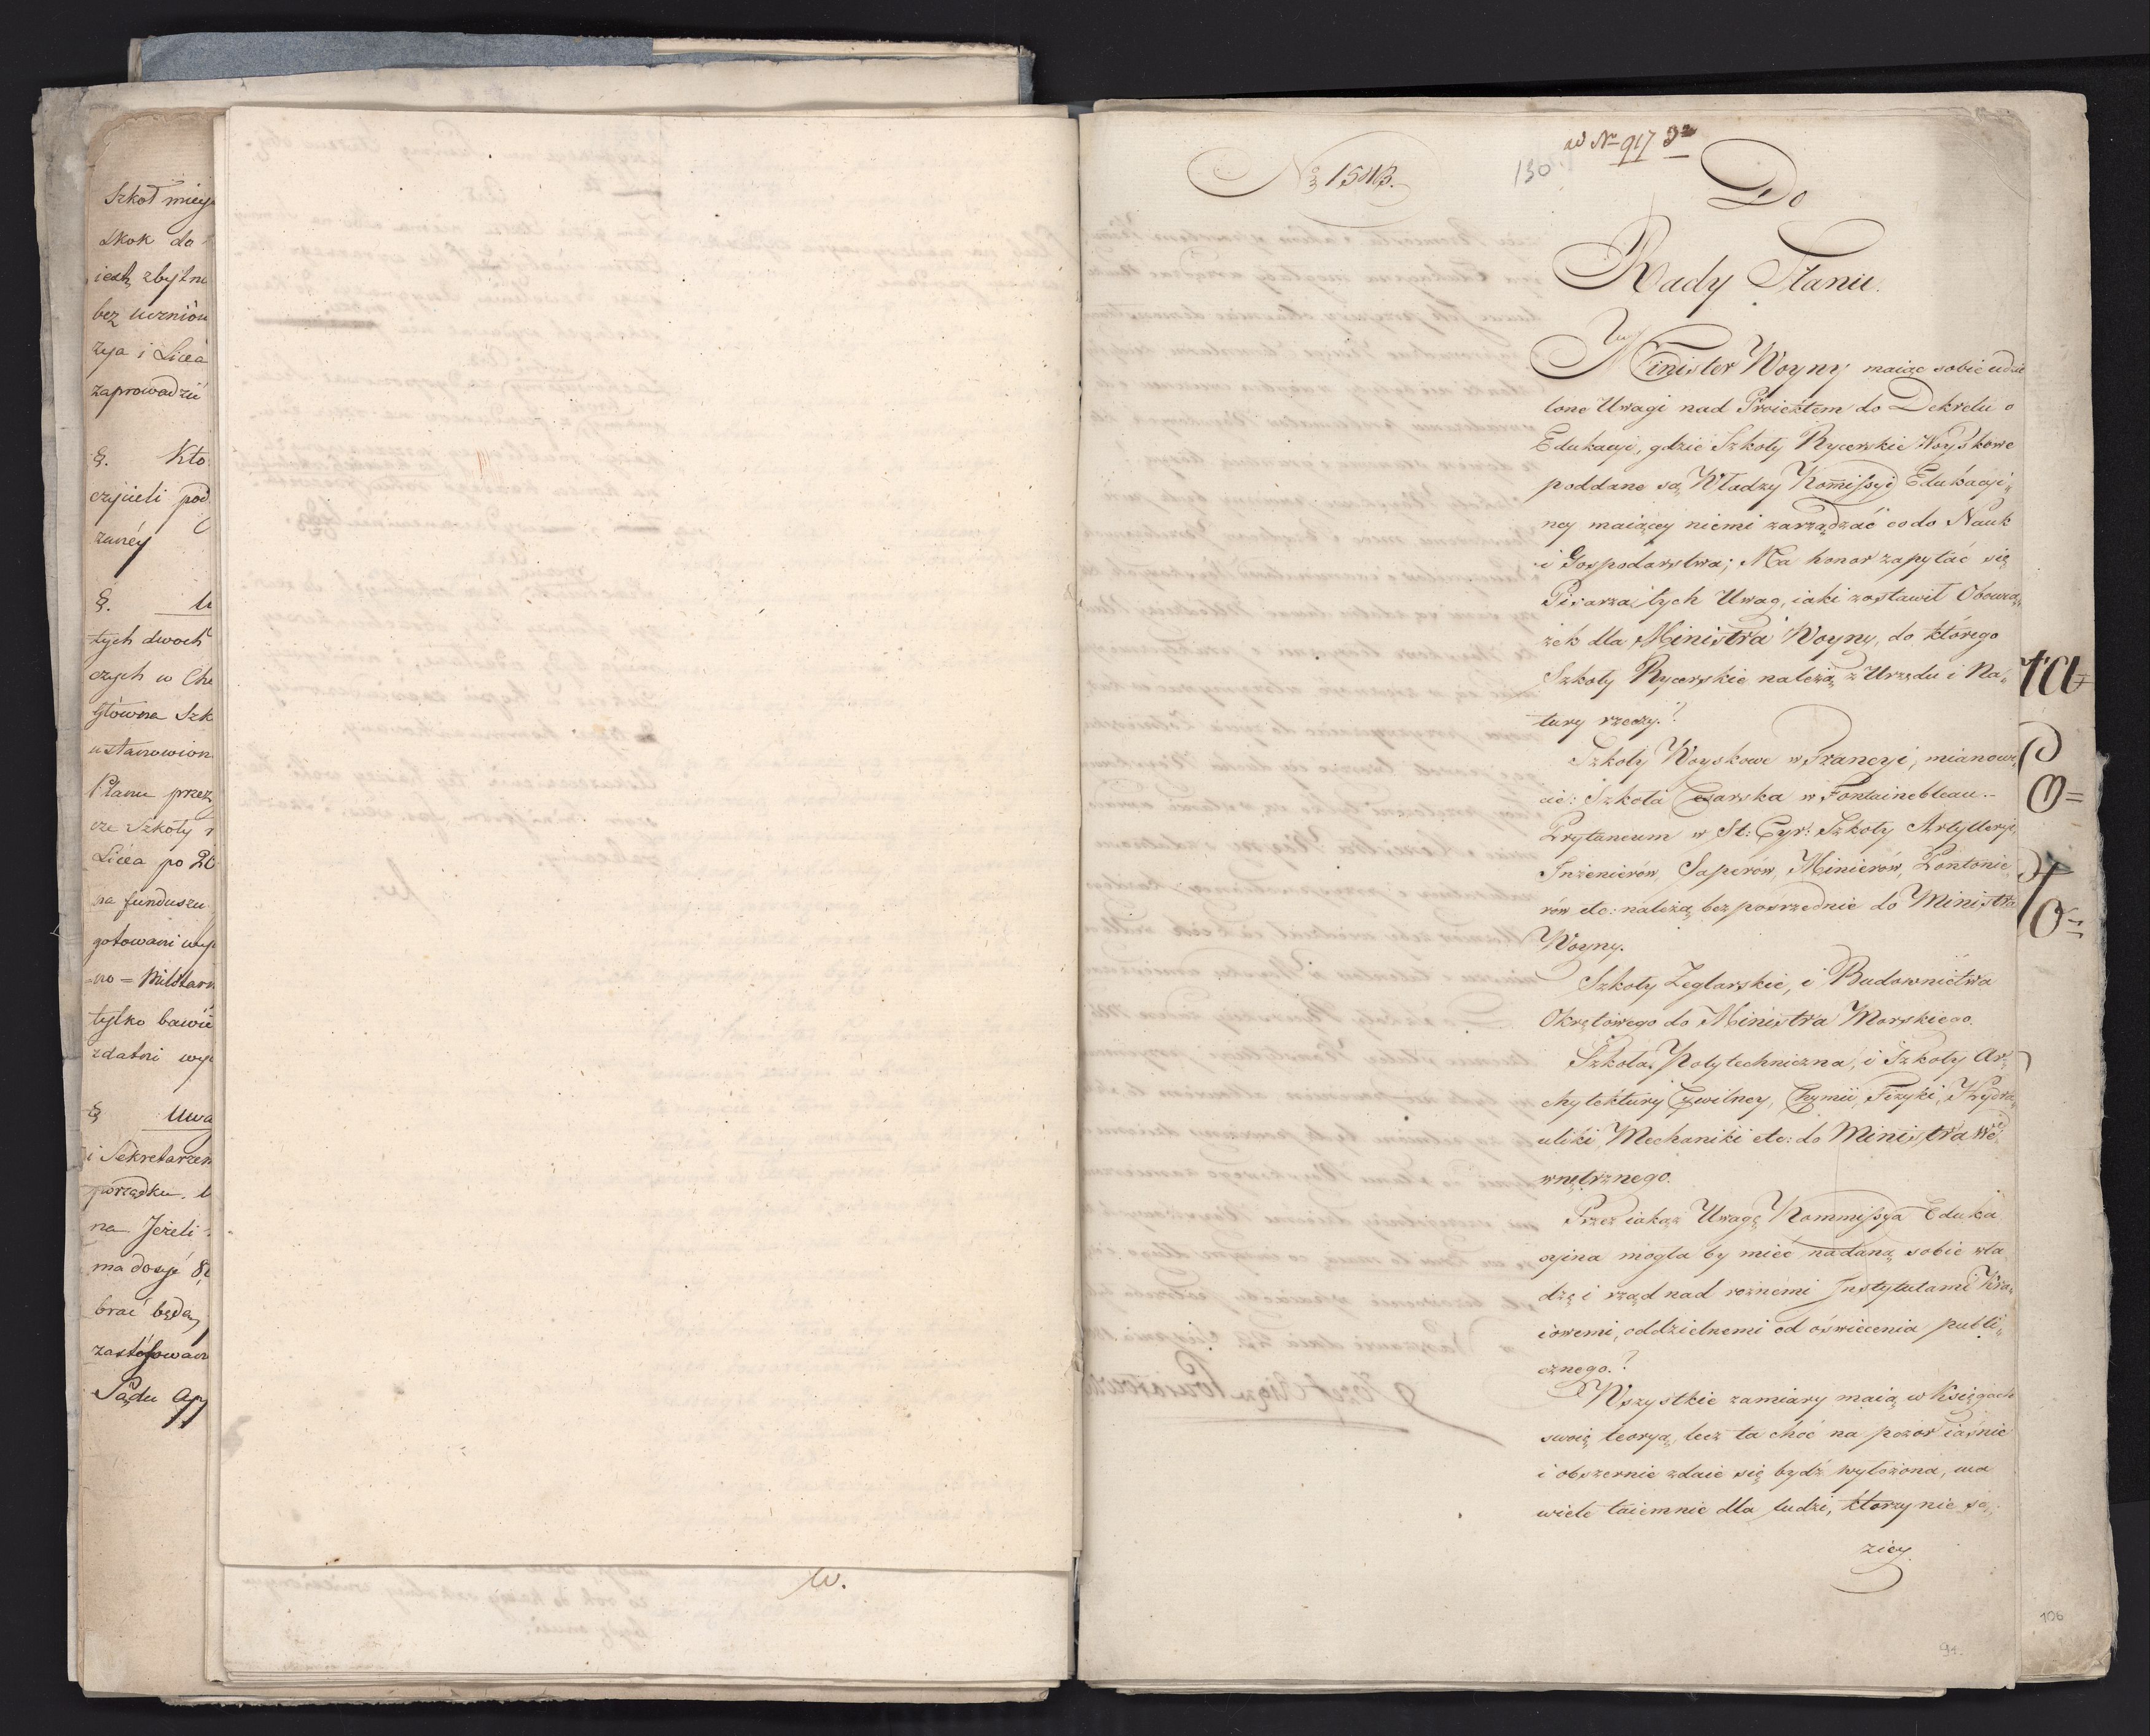 Szkoł miey
skok do
iest zbytni
bez uczniow
zya i Licea
zaprowadzić
§. Kto
czycieli pod
zaney
§.
tych dwoch
czych w Che
główna Szk
ustanowion
Planu przez
cze Szkoły
Licea po 20
na funduszu
gotowani
no = Militarn
tylko bawić
zdatni
§ Uwa
i Sekretarzem
porządku.
na Jeżeli
ma dosyć
brać będą
zastósowan
Sądu Ap
W.
N 1543.
130
ad Nr 917
Do
Rady Stanu.
Minister Woyny maiąc sobie udzie
lone Uwagi nad Proiektem do Dekretu o
Edukacyi, gdzie Szkoły Rycerskie Woyskowe
poddane są Władzy Kommissyi Edukacyi„
ney maiącey niemi zarządzać co do Nauk
i Gospodarstwa; Ma honor zapytać się
Pisarza tych Uwag, iaki zostawił Obowią„
zek dla Ministra Woyny, do którego
Szkoły Rycerskie należą z Urzędu i Na„
tury rzeczy.?
Szkoły Woyskowe w Francyi, mianowi„
cie: Szkoła Cesarska w Fontainebleau.-
Prytaneum w St: Cyr: Szkoły Artylleryi,
Inżenierów, Saperów, Minierów, Pontonie„
rów etc: należą bezpośrzednie do Ministra
Woyny.
Szkoły Żeglarskie, i Budownictwa
Okrętowego do Ministra Morskiego.
Szkoła Polytechniczna, i Szkoły Ar„
chytektury Cywilney, Chymii, Fizyki, Hydra„
uliki, Mechaniki etc: do Ministra We„
wnętrznego.
Przez iakąż Uwagę Kommissya Eduka
cyina mogła by mieć nadaną sobie wła„
dzę i rząd nad roznemi Instytutami Kra„
iowemi, oddzielnemi od oświecenia publi„
cznego.?
Wszystkie zamiary maią w Księgach
swoią teoryą, lecz ta choć na pozór iaśnie
i obszernie zdaie się bydź wyłożona, ma
wiele taiemnic dla ludzi, ktorzy nie są
ziey
94.
106